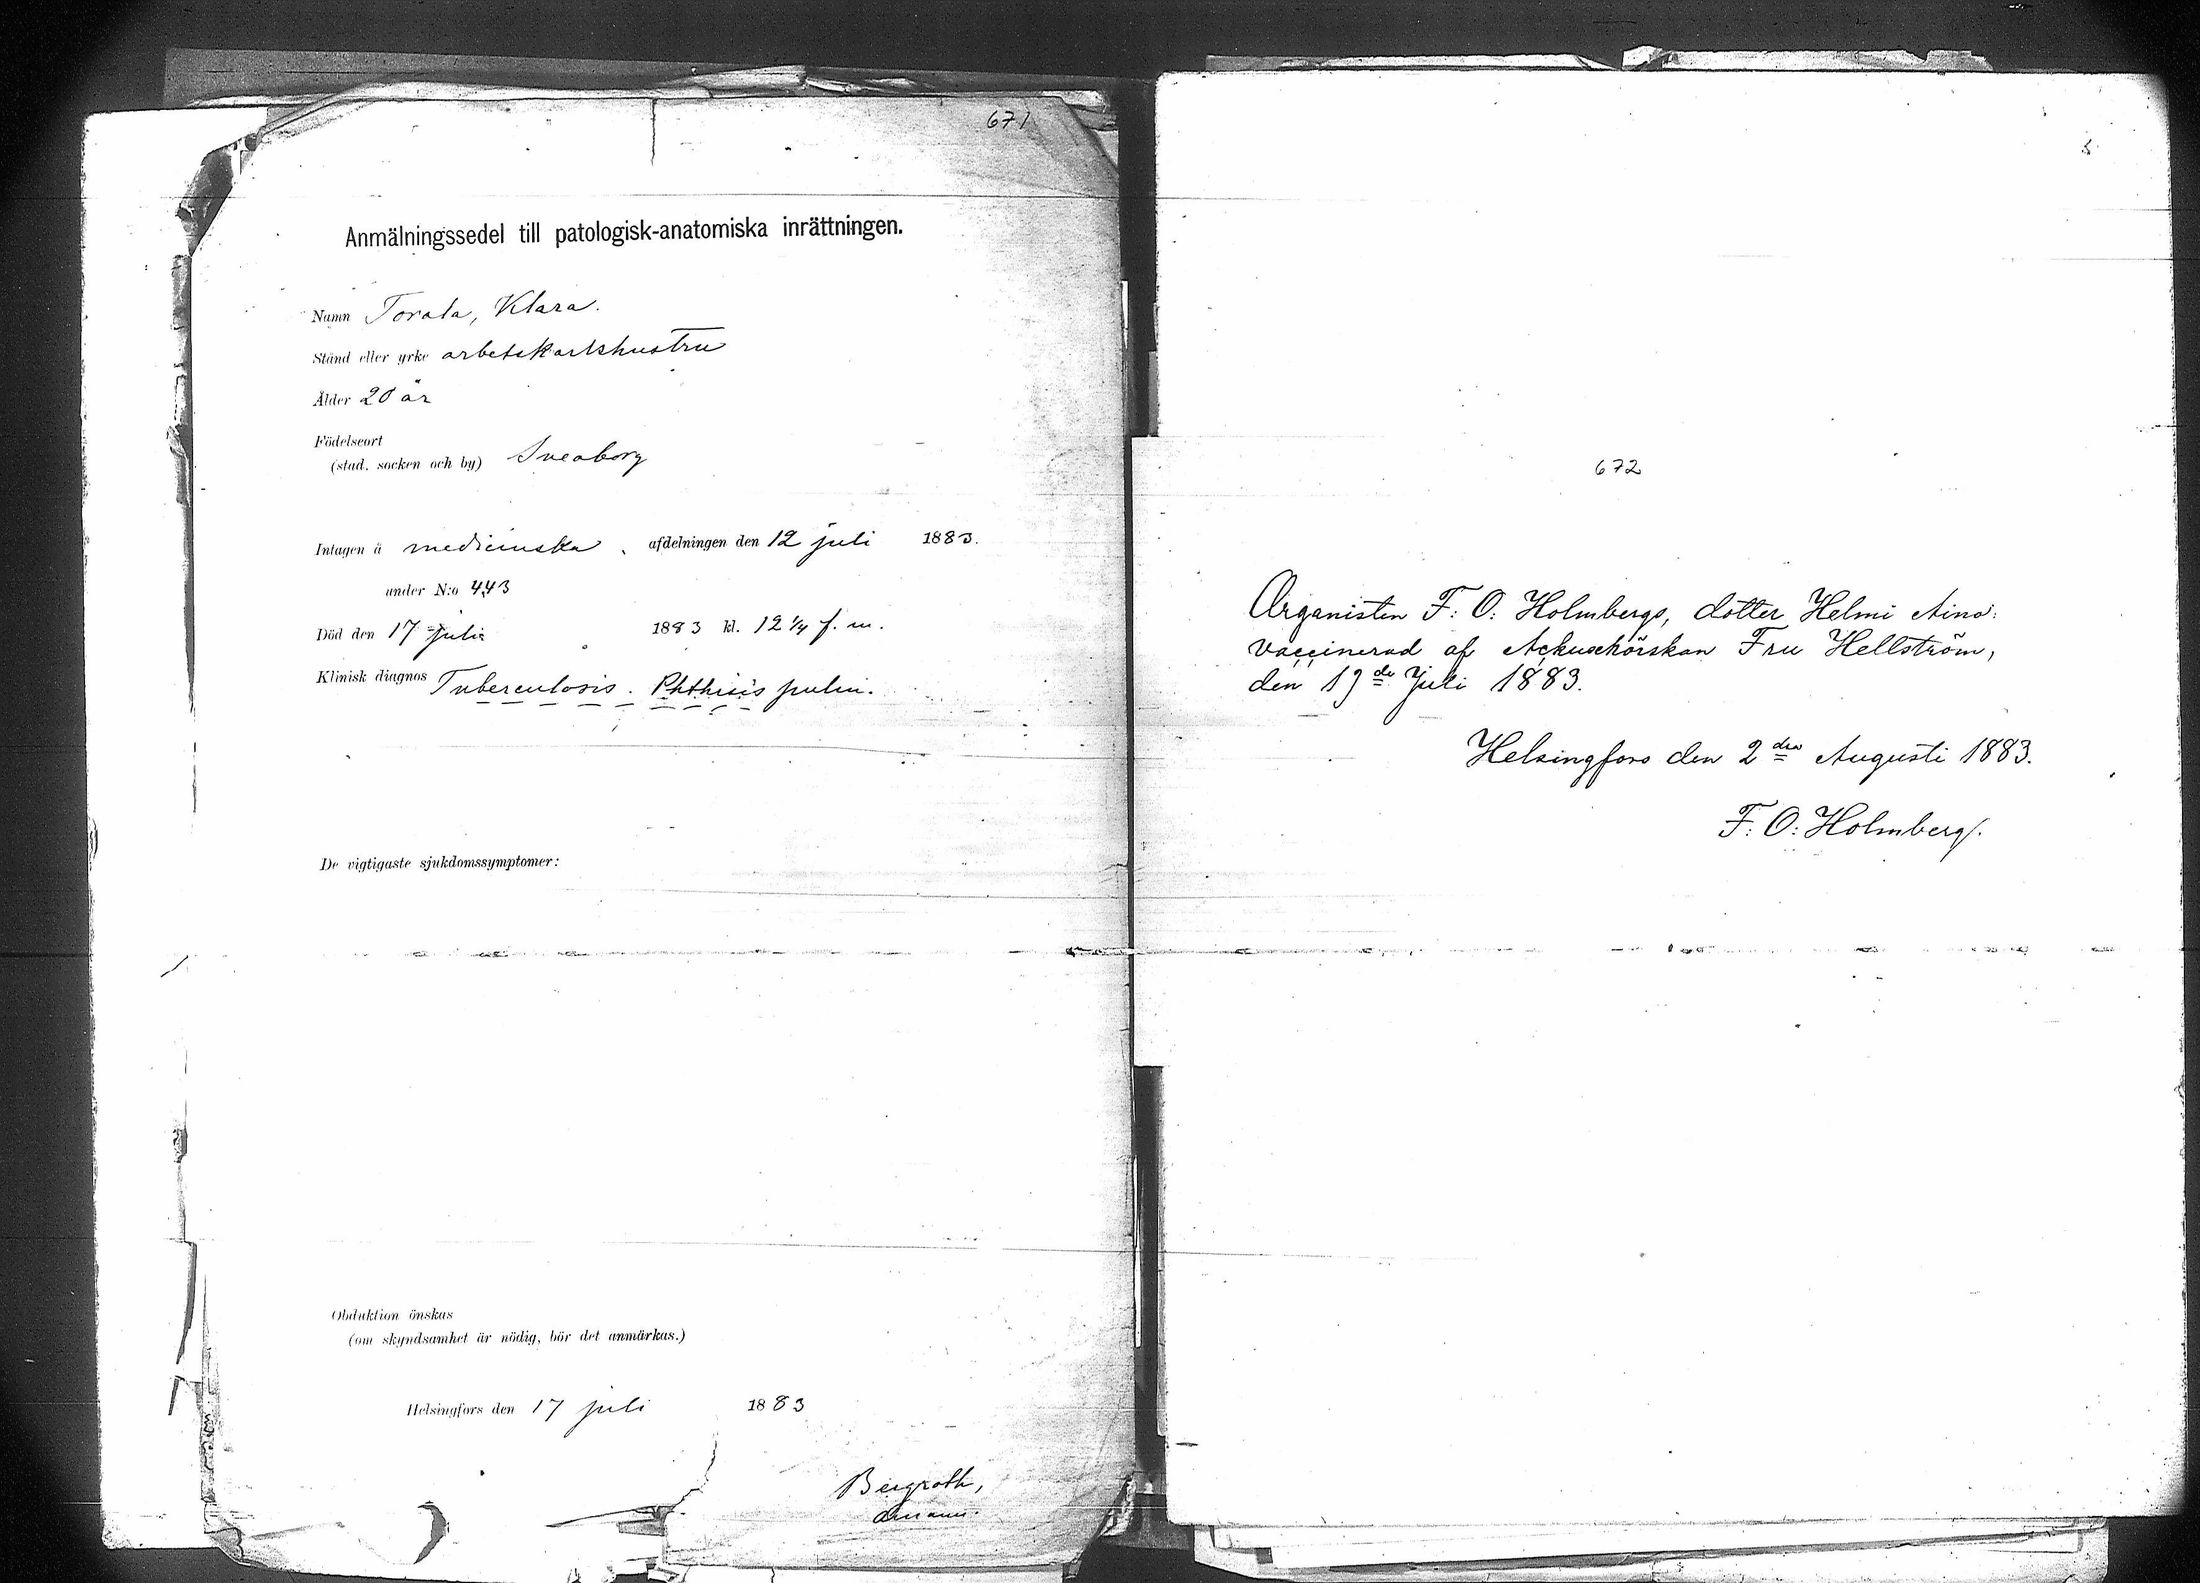 671
Anmälningssedel till patologisk-anatomiska inrättningen.
Namn Torala, Klara.
Stånd eller yrke arbetskarlshustru
Ålder 20 år
Födelseort
(stad, socken och by) Sveaborg
Intagen å medicinska afdelningen den 12 juli 1883.
under N:o 443
Död den 17 juli 1883 kl. 12 1/4 f. m.
Klinisk diagnos Tuberculosis. Phthisis pulm.
De vigtigaste sjukdomssymptomer:
Obduktion önskas
(om skyndsamhet är nödig, bör det anmärkas.)
Helsingfors den 17 juli 1883
Bergroth,
672
Organisten F: O: Holmbergs, dotter Helmi Aino:
vaccinerad af Ackuschörskan Fru Hellström,
den 19de Juli 1883.
Helsingfors den 2dra Augusti 1883.
F: O: Holmberg.